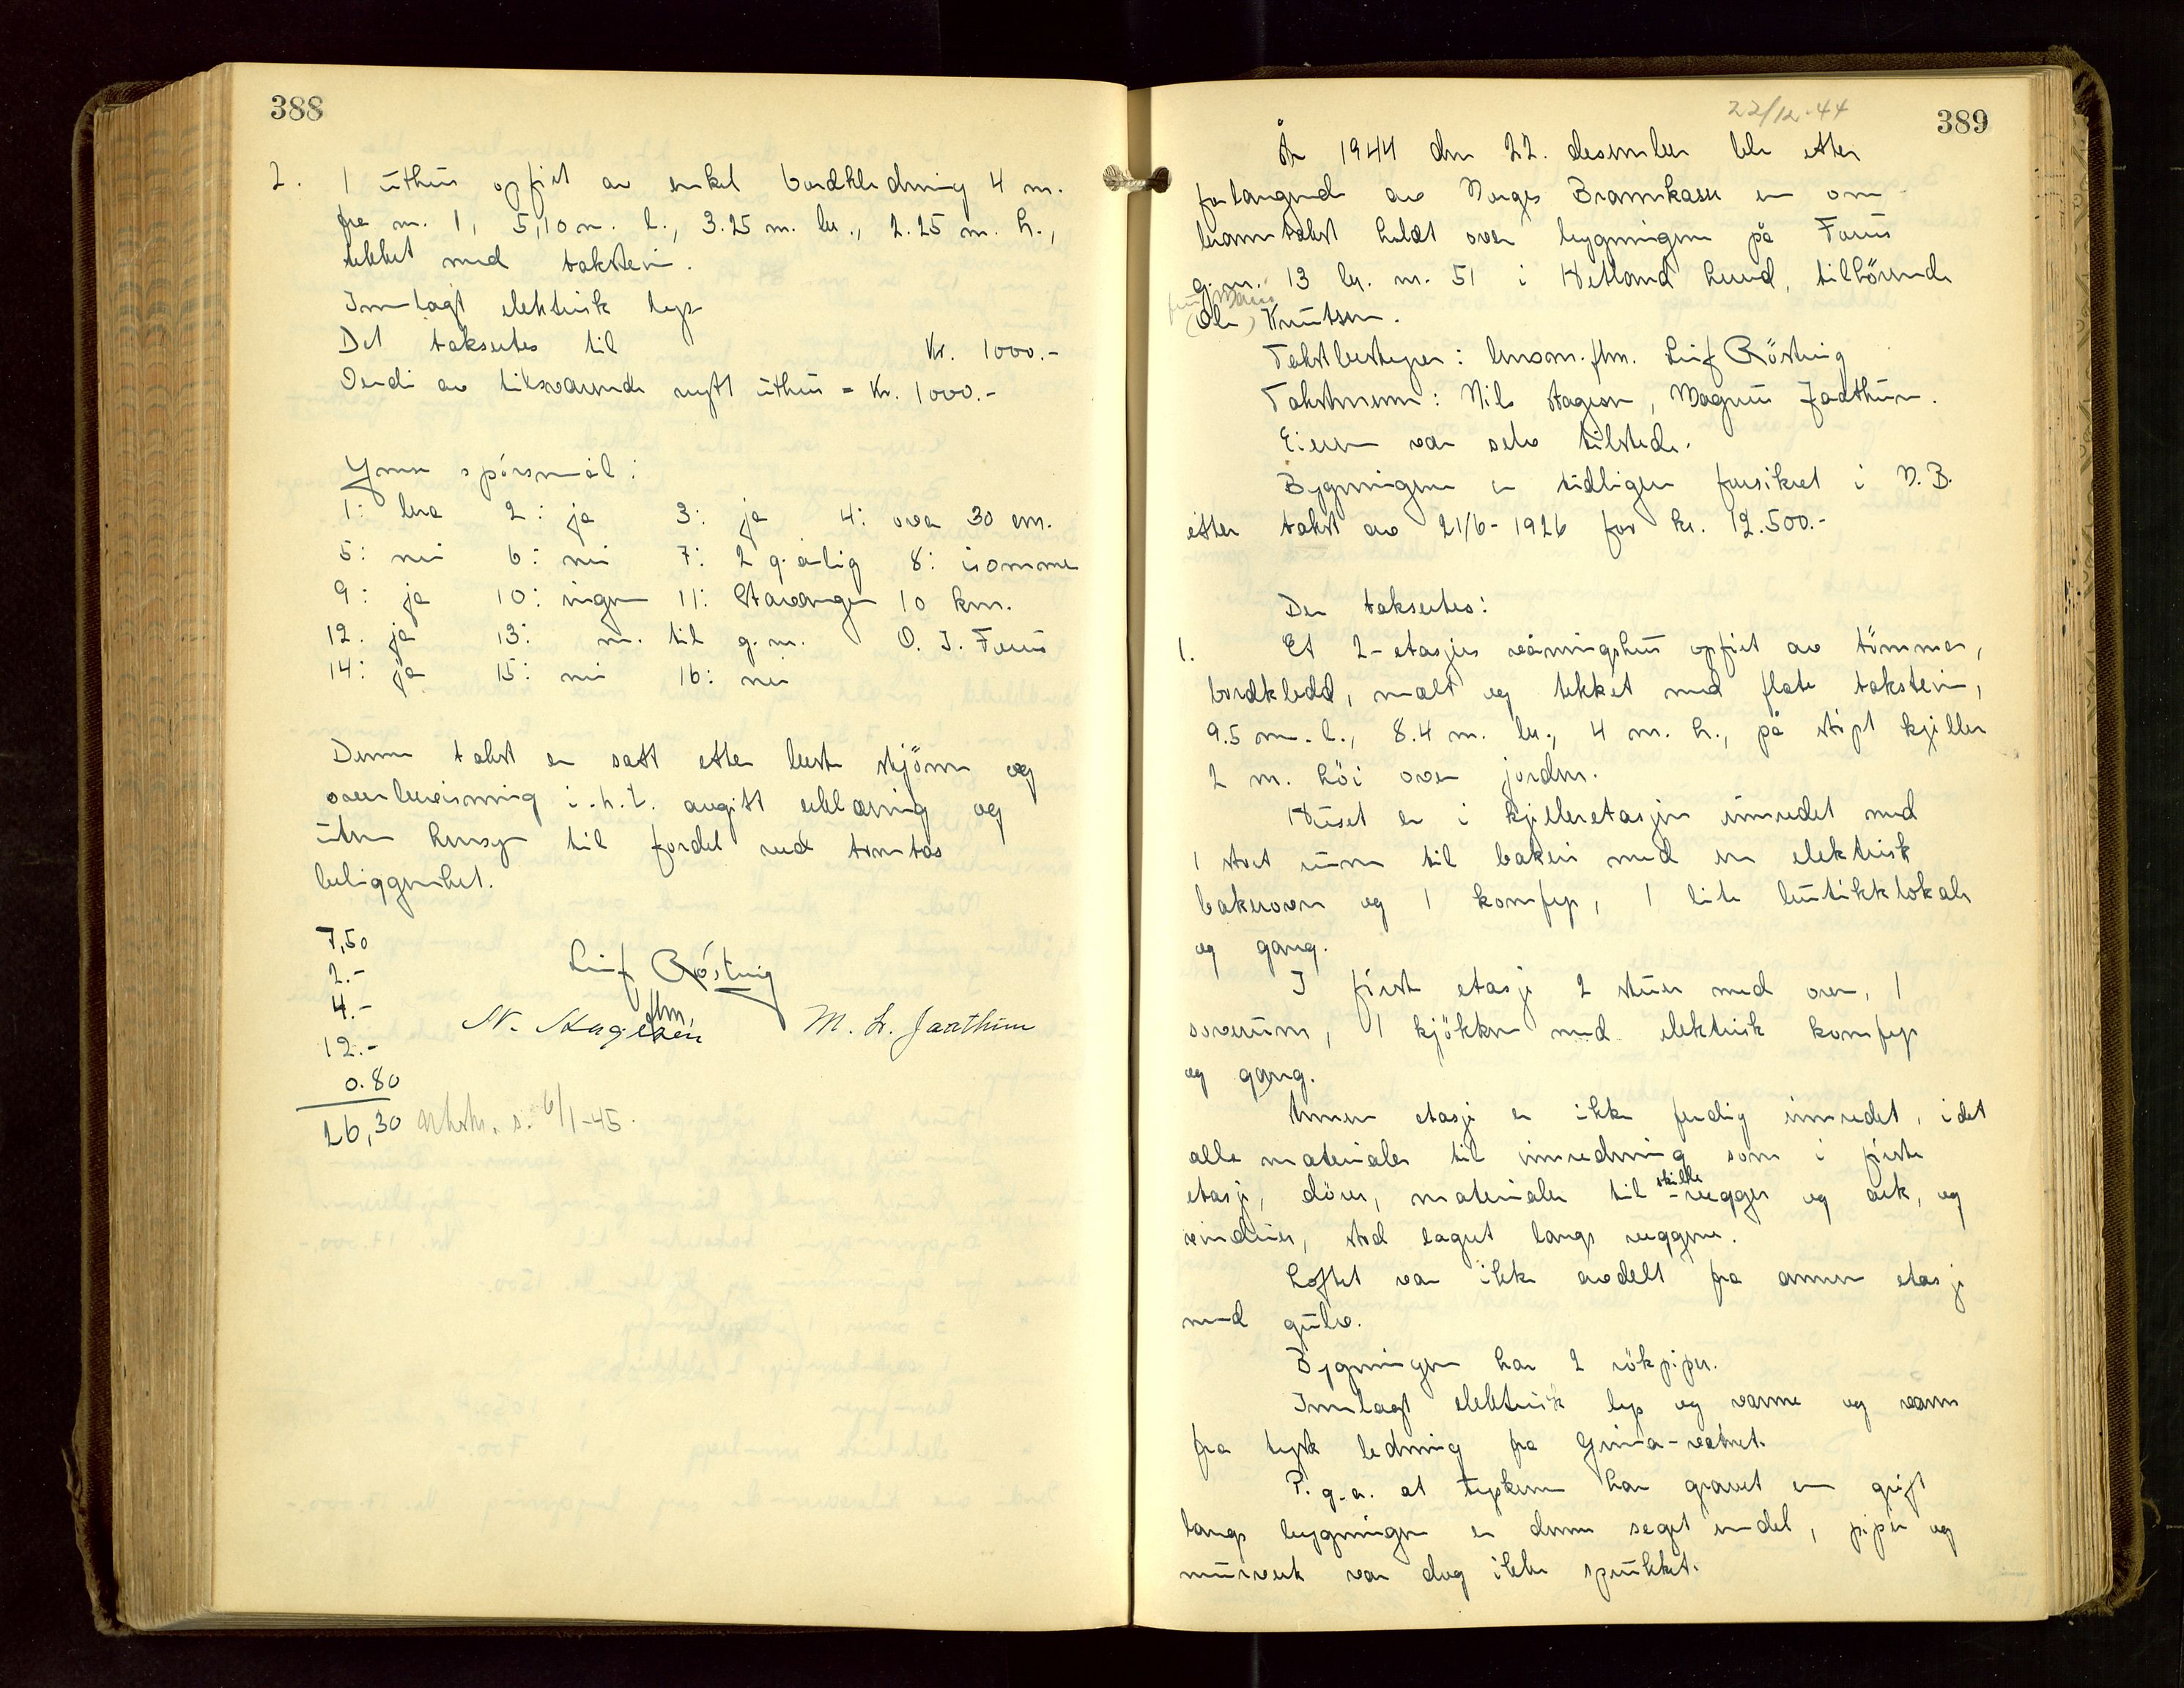 388
2. 1 uthus opført av enkel bordkledning 4 m.
fra nr. 1, 5,10 m. l., 3.25 m. br., 2.25 m. h.,
tekket med takstein.
Innlagt elektrisk lys
Det takseres til Kr. 1000.-
Verdi av tilsvarende nytt uthus = Kr. 1000.-
Ymse spörsmål:
1: bra 2: ja 3: ja 4: over 30 cm.
5: nei 6: nei 7: 2 g. årlig 8: isamme
9: ja 10: ingen 11: Stavanger 10 km.
12. ja 13: m. til g.nr. O. J. Forus
14: ja 15: nei 16: nei
Denne takst er satt etter beste skjönn og
overbevisning i.h.t. avgitt erklæring og
uten hensyn til fordel ved tomtas
beliggenhet.
7,50
2.-
4.-
12.-
0.80
26,30 s. 6/1-45.
Leif Röstvig
flm.
N. Stagesen M. L. Jaathun
22/12-44
389
År 1944 den 22. desember ble etter
forlangende av Norges Brannkasse en om-
branntakst holdt over bygningen på Forus
g.nr. 13 br. nr. 51 i Hetland herred, tilhörende
(Ole) Knutsen.
Takstbestyrer: lensm.flm. Leif Röstvig
Takstmenn: Nils Stagesen, Magnus Jaathun.
Eieren var selv tilstede.
Bygningene er tidligere forsikret i N.B.
etter takst av 21/6-1926 for kr. 12.500.-
Der takseres:
1. Et 2-etasjes våningshus opfört av tömmer,
bordkledd, malt og tekket med flate takstein,
9.5 m. l., 8.4 m. br., 4 m. h., på stöpt kjeller
2 m. höi over jorden.
Huset er i kjelleretasjen innredet med
1 stort rum til bakeri med en elektrisk
bakerovn og 1 komfyr, 1 lite butikklokale
og gang.
I förste etasje 2 stuer med ovn, 1
soverum, 1 kjökken med elektrisk komfyr
og gang.
Annen etasje er ikke ferdig innredet, idet
alle materialer til innredning som i förste
etasje, dörer, materialer til skille-vegger og ark, og
vinduer, stod lagret langs veggene.
Loftet var ikke avdelt fra annen etasje
med gulv.
Bygningen har 2 rökpiper.
Innlagt elektrisk lys og varme og vann
fra tysk ledning fra Grunna-vatnet.
P.g.a. at tyskerne har gravet en gröft
langs bygningen er denne seget endel, piper og
murverk var dog ikke sprukket.